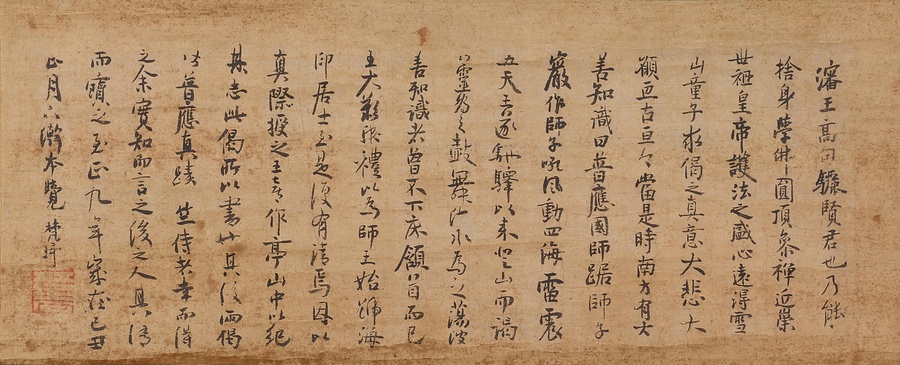 瀋王高句驪賢君也乃能
捨身學佛圓頂參禪近集
世祖皇帝護法之盛心遠得雪
山童子求偈之真意大悲大
願亘古亘今當是時南方有大
善知識曰普應國師踞師子
巖作師子吼風動四海雷震
五天王遂馳驛以來登山而謁
靈為之鼓舞江水為之蕩波
善知識者曾不下床領首而已
王大歎服禮以為師王始號海
印居士至是復有請焉因以
真際授之王喜作亭山中以紀
其志此偈所以書也其後而偈
皆普應真蹟 侍者幸而得
之余實知而言之後之人具傳
而寶之至正九年歲在己丑
正月六日 本覺 梵琦